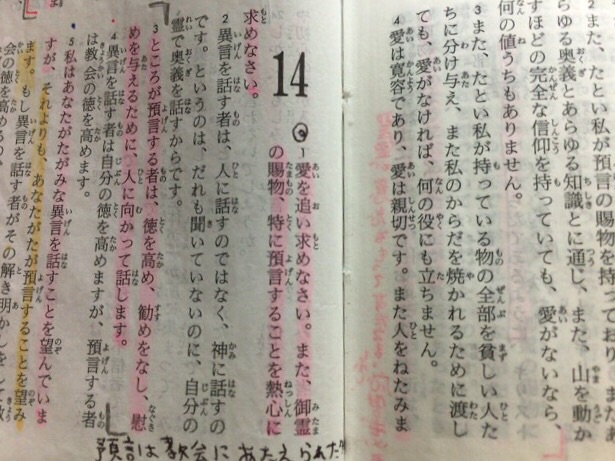 2また、たとい私が預言の賜物を持
らゆる奥義とあらゆる知識とに通じ、また、山を動か
すほどの完全な信仰を持っていても、愛がないなら、
何の値うちもありません。
3また、たとい私が持っている物の全部を貧しい人た
ちに分け与え、また私のからだを焼かれるために渡し
ても、愛がなければ、何の役にも立ちません。
4愛は寛容であり、愛は親切です。また人をねたみま
14
1愛を追い求めなさい。また、御霊
の賜物、特に預言することを熱心に
求めなさい。
2異言を話す者は、人に話すのではなく、神に話すの
です。というのは、だれも聞いていないのに、自分の
霊で奥義を話すからです。
3ところが預言する者は、徳を高め、勧めをなし、慰
めを与えるために、人に向かって話します。
4異言を話す者は自分の徳を高めますが、預言する者
は教会の徳を高めます。
5私はあなたがたがみな異言を話すことを望んでいま
すが、それよりも、あなたがたが預言することを望み
ます。もし異言を話す者がその解き明かしをして
会の徳を高めるの
預言は教会にあたえられた